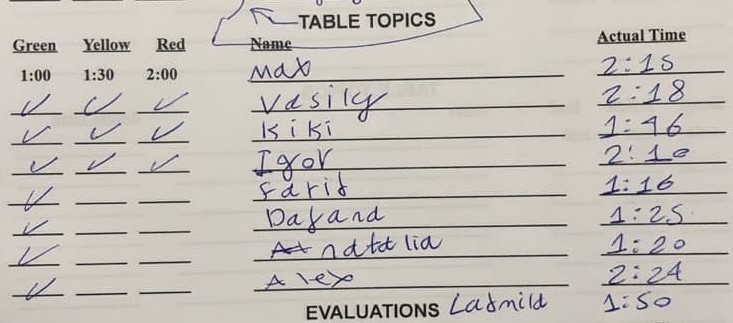 TABLE TOPICS
Green Yellow Red Name Actual Time
1:00 1:30 2:00 Max 2:15
✓ ✓ ✓ Vasily 2:18
✓ ✓ ✓ Kiki 1:46
✓ ✓ ✓ Igor 2:10
✓ Farid 1:16
✓ Dafand 1:25
✓ natalia 1:20
✓ Alex 2:24
EVALUATIONS Ladmild 1:50